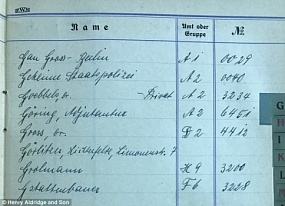 Name Amt oder Gruppe №
Gau Gross-Berlin A 1 0029
Geheime Staatspolizei A 2 0040
Goebbels, Dr. - Privat A 2 3234
Göring, Adjutantur A 2 6451
Gross, Dr. D 2 4412
Görlitzer, Lichterfelde, Limonenstr. 7
Grolmann H 9 3200
Gstattenbauer F 6 3228
G
H
I
K
L
© Henry Aldridge and Son